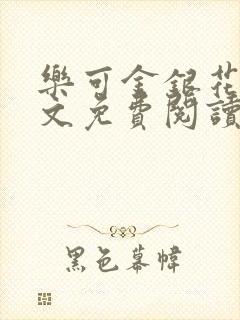 樂可金銀花
文免費閱讀
黑色幕幃